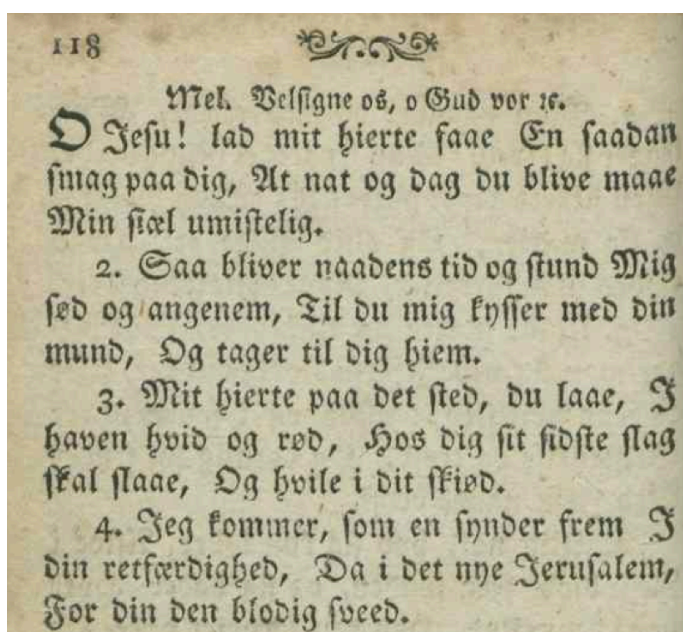 118
Mel. Velsigne os, o Gud vor ꝛc.
O Jesu! lad mit hierte faae En saadan
smag paa dig, At nat og dag du blive maae
Min siæl umistelig.
2. Saa bliver naadens tid og stund Mig
sød og angenem, Til du mig kysser med din
mund, Og tager til dig hiem.
3. Mit hierte paa det sted, du laae, I
haven hvid og rød, Hos dig sit sidste slag
skal slaae, Og hvile i dit skiød.
4. Jeg kommer, som en synder frem I
din retfærdighed, Da i det nye Jerusalem,
For din den blodig sveed.